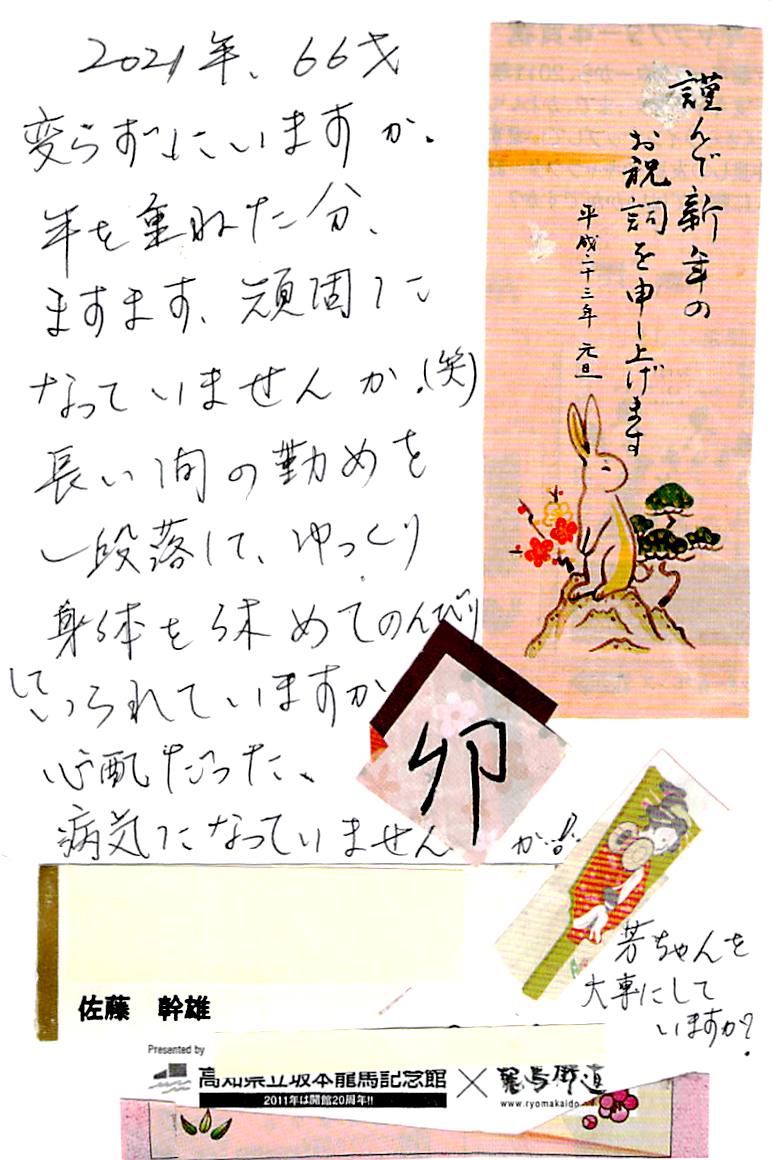 2021年、66才
変らずにいますか。
年を重ねた分、
ますます、頑固に
なっていませんか。(笑)
長い間の勤めを
一段落して、ゆっくり
身体を休めてのんびり
して
いられていますか
心配だった、
病気になっていません
か!!
謹んで新年の
お祝詞を申し上げます
平成二十三年 元旦
卯
芳ちゃんを
大事にして
いますか?
佐藤 幹雄
Presented by
高知県立坂本龍馬記念館 × 龍馬街道
2011年は開館20周年!!
www.ryomakaido.